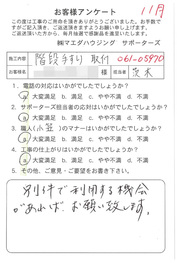 11月
お客様アンケート
この度は工事のご用命を頂きありがとうございました。お手数で
すがご記入頂き、ご返送頂きますようお願い申し上げます。
ご返送いただいた方から、毎月抽選で感謝品を進呈いたします。
㈱マエダハウジング サポーターズ
工事内容 階段手すり取付 061-05970
お客様名 様 担当者 茂木
1．電話の対応はいかがでしたでしょうか?
a 大変満足 b．満足 c．やや不満 d．不満
2．サポーターズ担当者の対応はいかがでしたでしょうか?
a 大変満足 b．満足 c．やや不満 d．不満
3．職人(小笠)のマナーはいかがでしたでしょうか?
a 大変満足 b．満足 c．やや不満 d．不満
4．工事の仕上がりはいかがでしたでしょうか?
a 大変満足 b．満足 c．やや不満 d．不満
5．その他、ご意見・ご要望をお書き下さい。
別件で利用する機会
があれば、お願い致します。